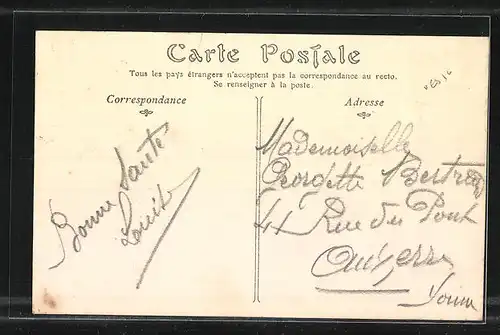 Carte Postale
Tous les pays étrangers n'acceptent pas la correspondance au recto.
Se renseigner à la poste.
Correspondance
Adresse
Bonne Santé
Louis
Mademoiselle
Georgette
41 Rue du Pont
Auxerre
Yonne